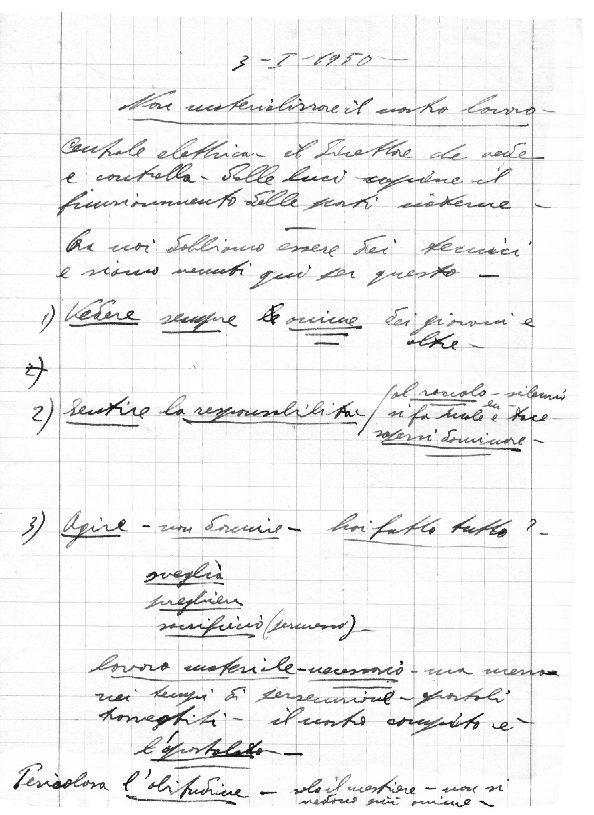 3-I-1950-
Non materializzare il nostro lavoro-
Centrale elettrica - il Direttore che vede
e controlla - dalle luci capisce il
funzionamento delle parti interne -
Ora noi dobbiamo essere dei tecnici
e siamo venuti qui per questo -
1) Vedere sempre le anime dei giovani e
oltre -
2)
2) Sentire la responsabilità / al - silenzi
si fa male e tace
sapersi dominare -
3) Agire - non dormire - hai fatto tutto ? -
sveglia
preghiera
sacrificio (permesso) -
lavoro materiale - necessario - ma meno
nei tempi di persecuzione - apostoli
travestiti - il nostro compito è
l'apostolato -
Pericolosa l'abitudine - solo il mestiere - non si
vedono più anime -